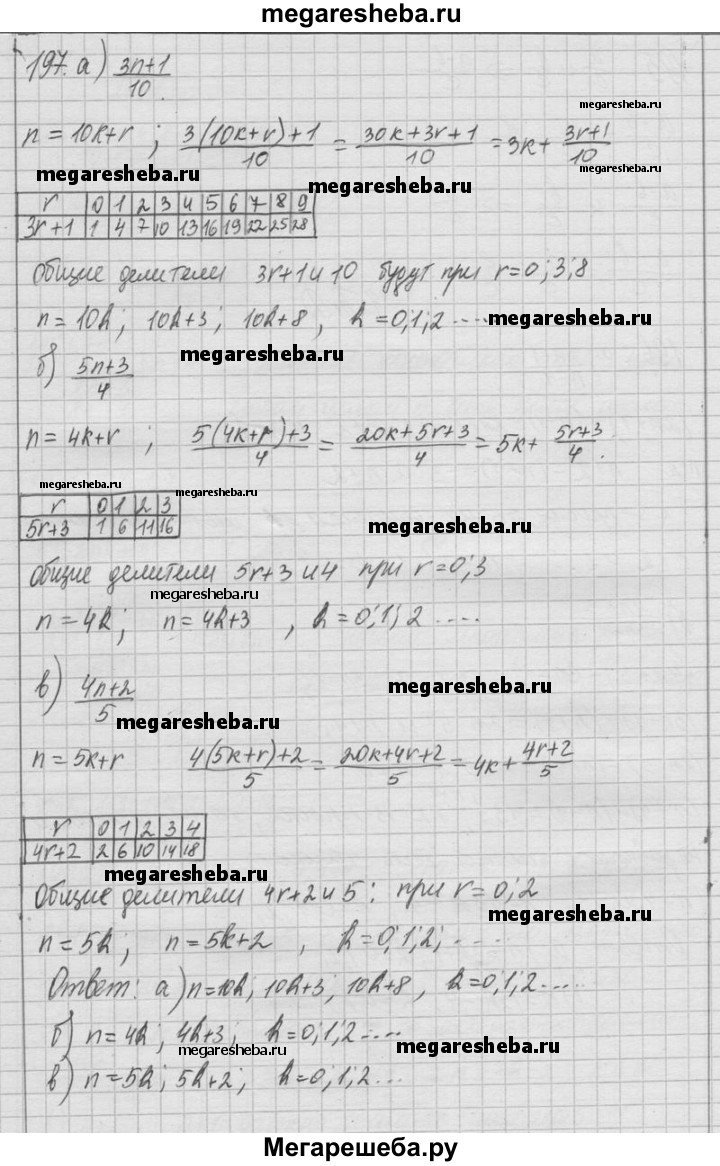 megaresheba.ru
197. а) (3n+1)/10
megaresheba.ru
n = 10k+r ; (3(10k+r)+1)/10 = (30k+3r+1)/10 = 3k + (3r+1)/10
megaresheba.ru megaresheba.ru
r 0 1 2 3 4 5 6 7 8 9
3r+1 1 4 7 10 13 16 19 22 25 28
Общие делители 3r+1 и 10 будут при r=0; 3; 8
n = 10k; 10k+3; 10k+8, k = 0; 1; 2 ....
megaresheba.ru
б) (5n+3)/4
megaresheba.ru
megaresheba.ru
n = 4k+r ; (5(4k+r)+3)/4 = (20k+5r+3)/4 = 5k + (5r+3)/4.
megaresheba.ru
megaresheba.ru
r 0 1 2 3
5r+3 1 6 11 16
megaresheba.ru
Общие делители 5r+3 и 4 при r=0; 3
megaresheba.ru
n = 4k; n = 4k+3 , k = 0; 1; 2 ....
в) (4n+2)/5
megaresheba.ru
megaresheba.ru
n = 5k+r (4(5k+r)+2)/5 = (20k+4r+2)/5 = 4k + (4r+2)/5
r 0 1 2 3 4
4r+2 2 6 10 14 18
megaresheba.ru
Общие делители 4r+2 и 5: при r=0; 2
megaresheba.ru
n = 5k; n = 5k+2 , k = 0; 1; 2; ....
Ответ: а) n=10k; 10k+3; 10k+8, k = 0; 1; 2 ....
б) n = 4k; 4k+3; k = 0; 1; 2 ....
megaresheba.ru megaresheba.ru
в) n = 5k; 5k+2; k = 0; 1; 2 ...
Мегарешеба.ру